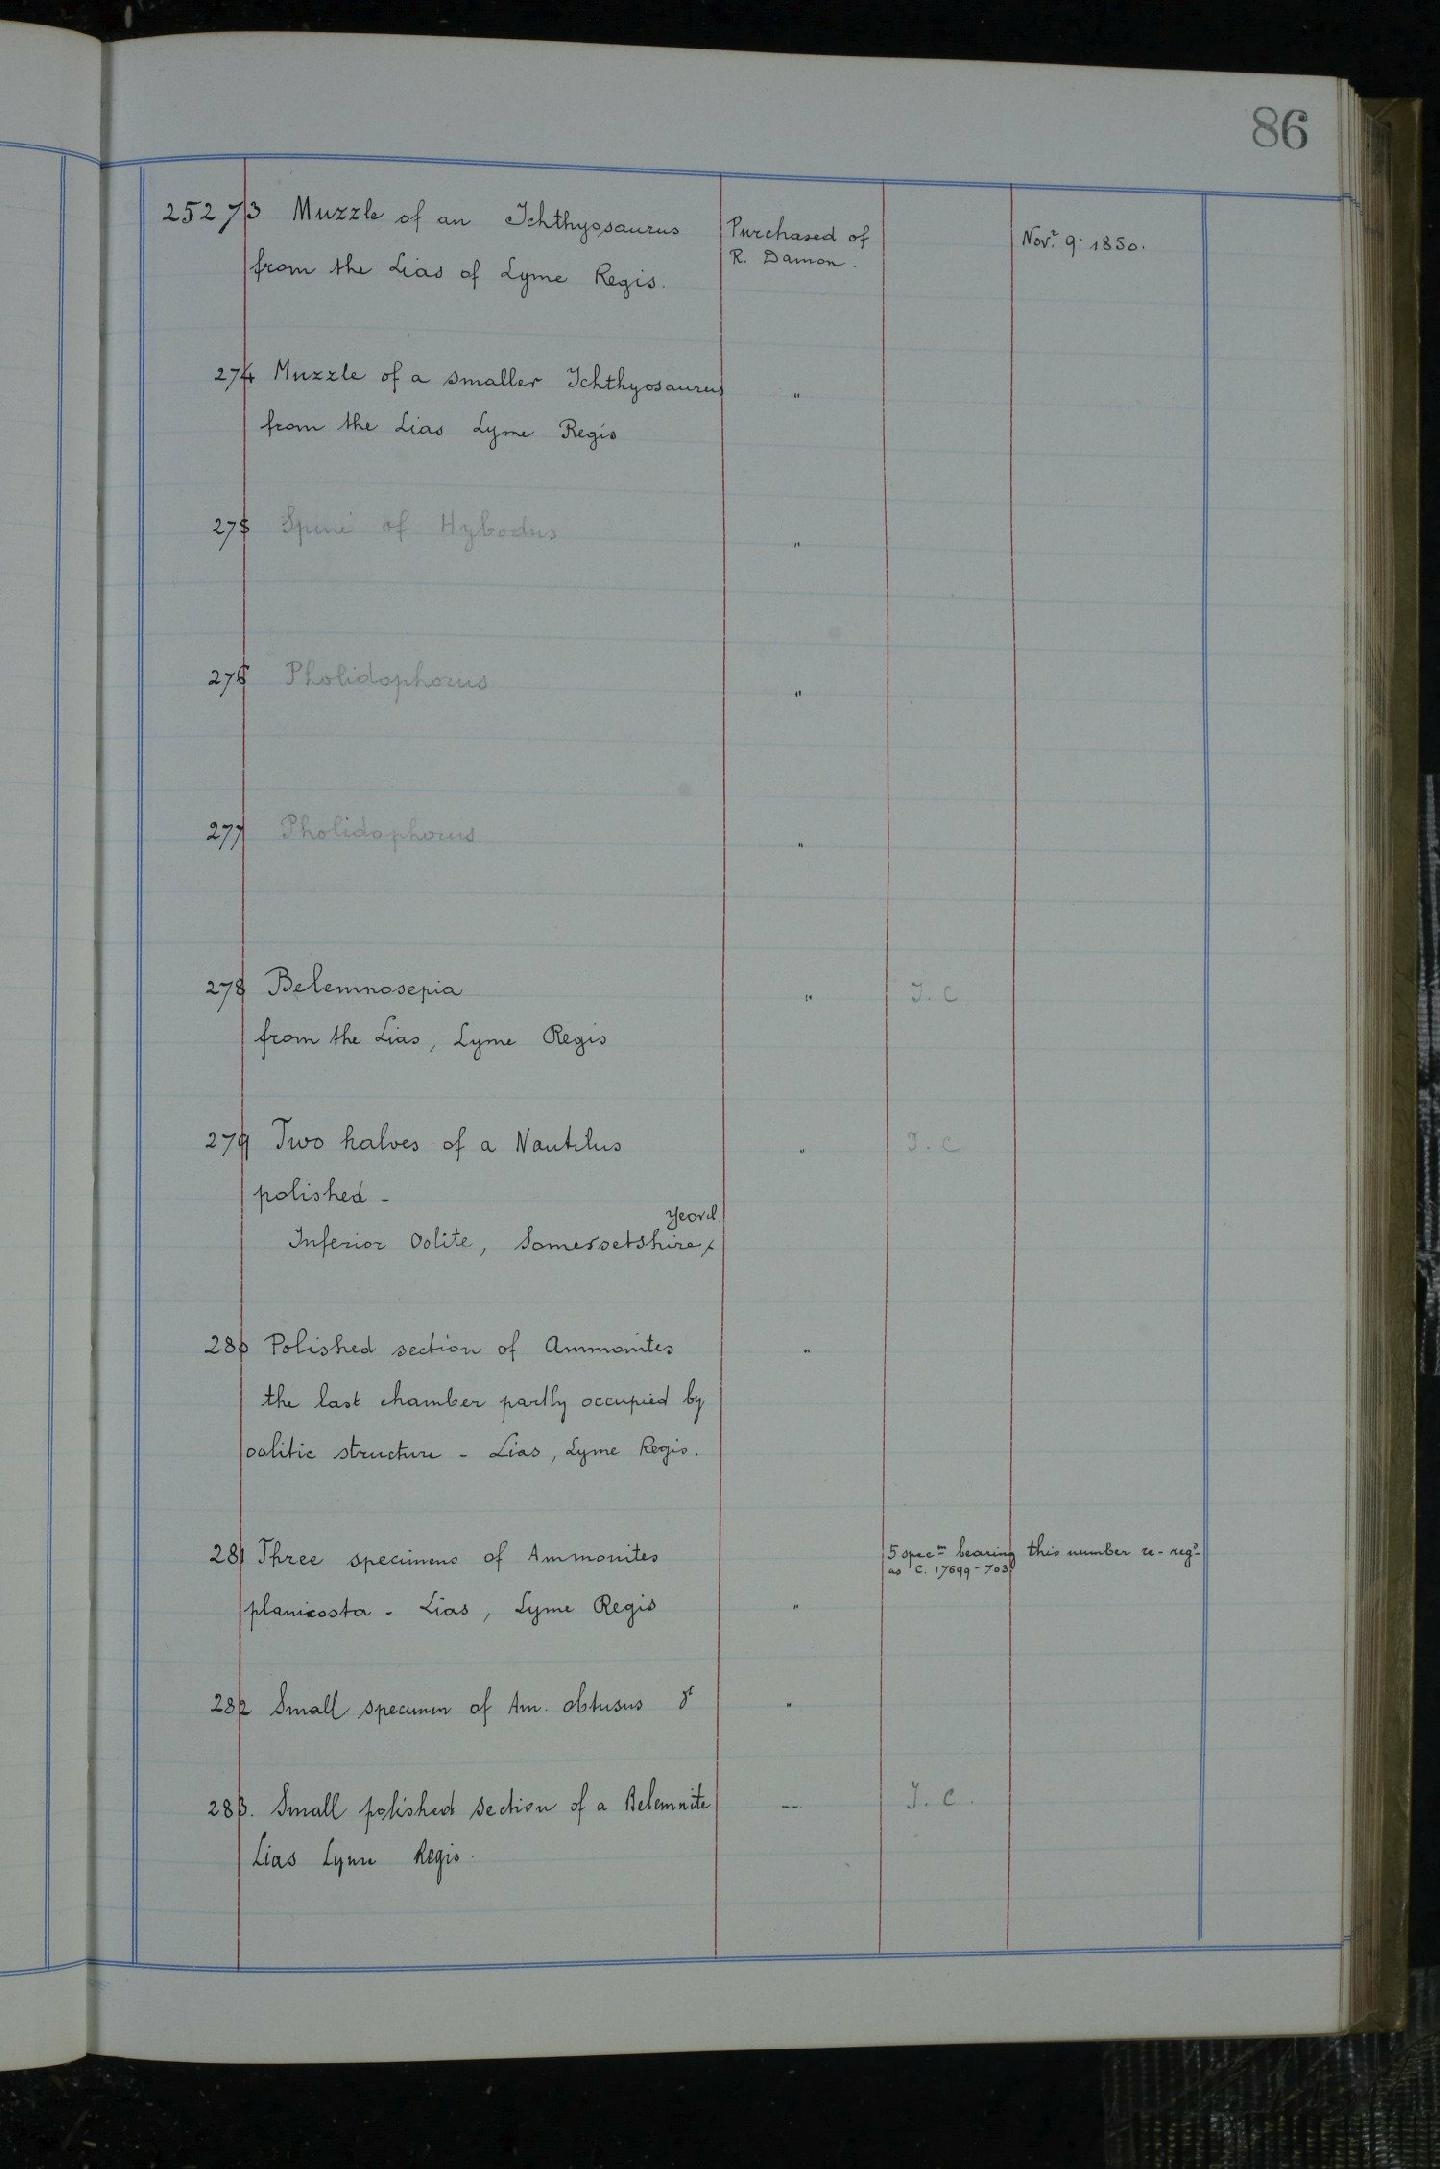 86
25273 Muzzle of an Ichthyosaurus
from the Lias of Lyme Regis.
Purchased of
R. Damon.
Novr. 9. 1850.
274 Muzzle of a smaller Ichthyosaurus "
from the Lias Lyme Regis
275 Spine of Hybodus "
276 Pholidophorus "
277 Pholidophorus "
278 Belemnosepia " I. C
from the Lias, Lyme Regis
279 Two halves of a Nautilus " I. C
polished -
Yeovil
Inferior Oolite, Somersetshire,
280 Polished section of Ammonites "
the last chamber partly occupied by
oolitic structure - Lias, Lyme Regis.
281 Three specimens of Ammonites
5 specms bearing this number re-regd
as C. 17699-703.
planicosta - Lias, Lyme Regis "
282 Small specimen of Am. obtusus "
283. Small polished section of a Belemnite -- I. C.
Lias Lyme Regis.